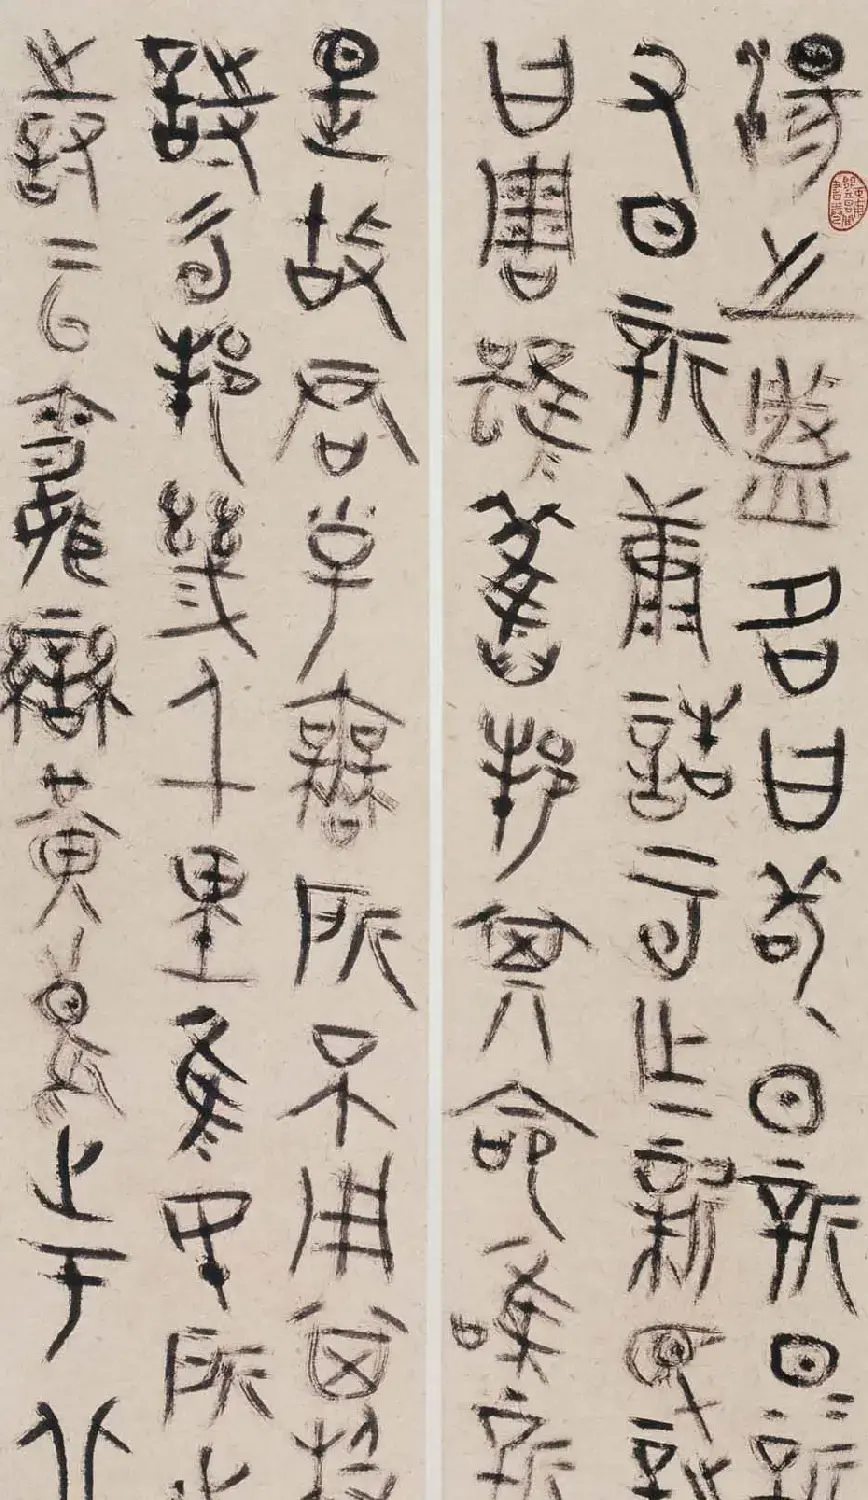 湯之盤名曰苟日新日=新
又日新康誥云乍新民詩
曰周雖舊邦其命唯新
是故君子無所不用其極
詩云邦畿千里隹民所止
之詩云緡蠻黃鳥止于丘